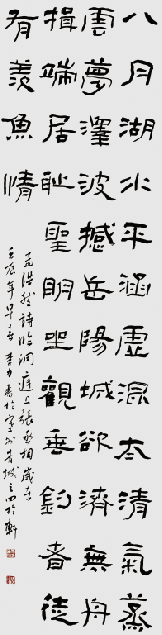 八月湖水平涵虛混太清氣蒸
雲夢澤波撼岳陽城欲濟無舟
楫端居恥聖明坐觀垂釣者徒
有羨魚情
孟浩然詩臨洞庭上張丞相歲在
壬辰年早春